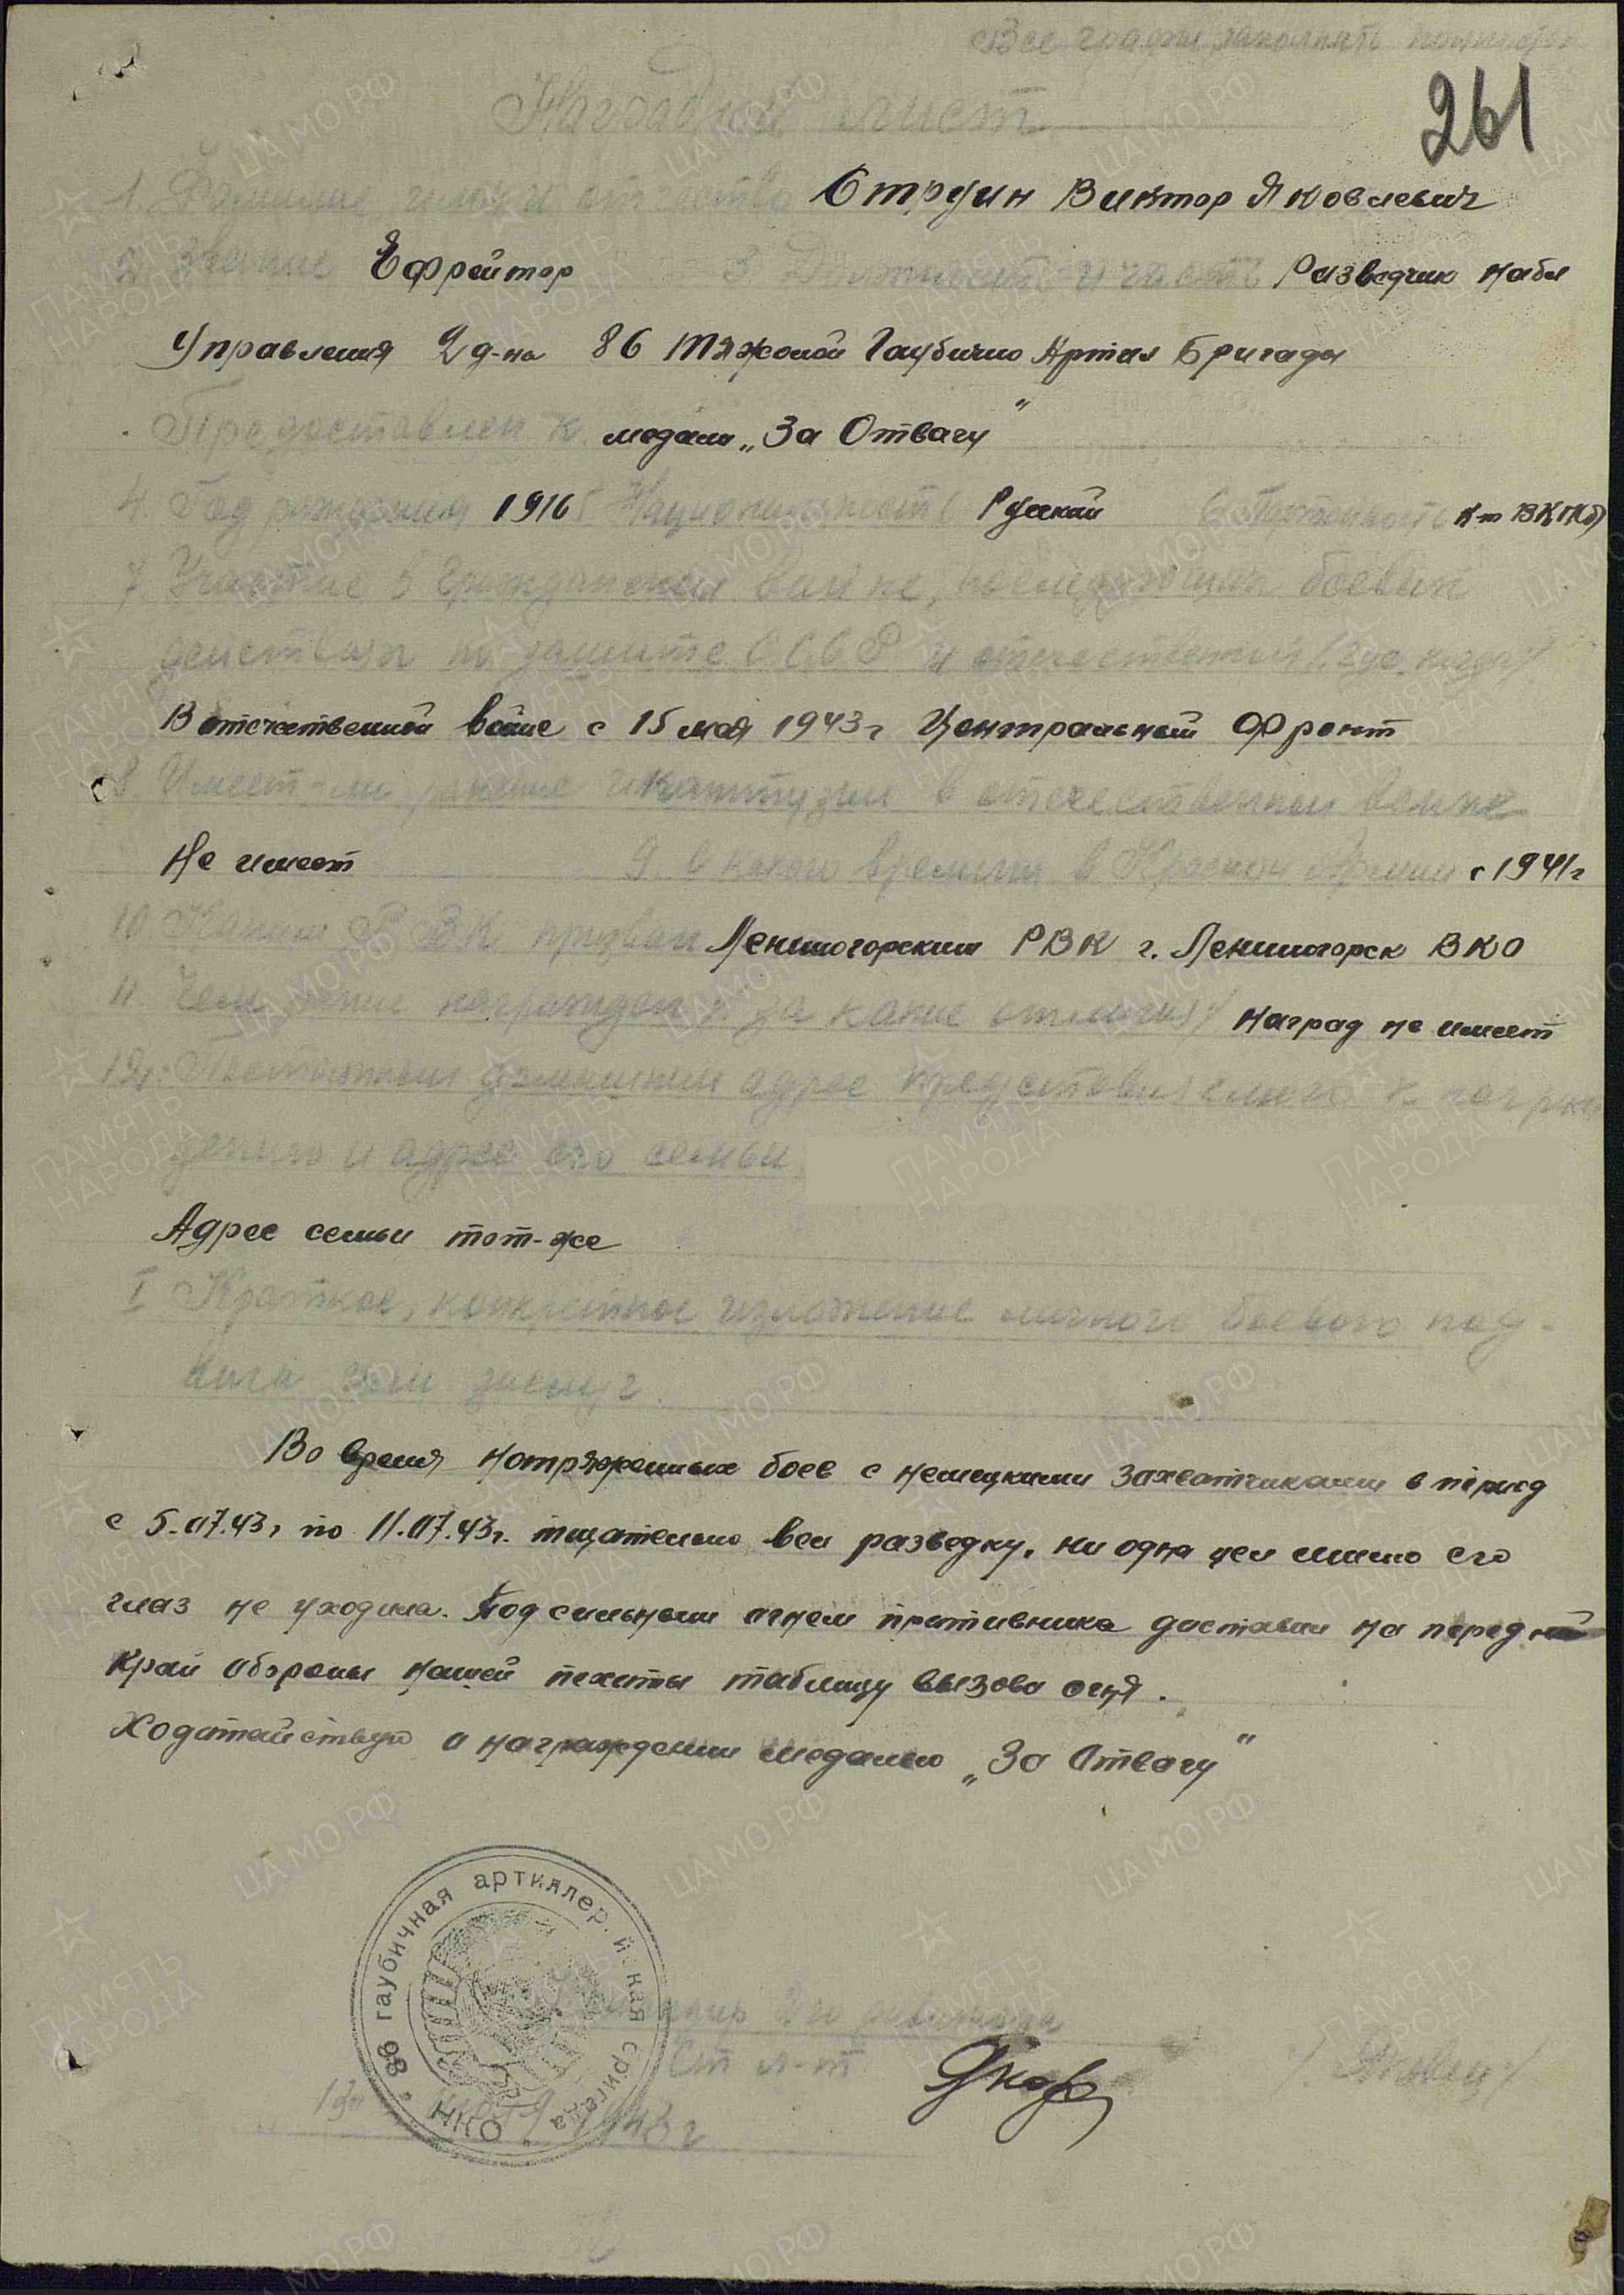 Все графы заполнять
261
Наградной лист
1. Фамилия имя и отчество Струин Виктор Яковлевич
2 Звание Ефрейтор 3 Должность и часть Разведчик набл
Управления 2 д-на 86 Тяжолой Гаубично Артил Бригады
Предоставлен к медали „За Отвагу"
4 Год рождения 1916 5 Национальность Русский 6 Партийность К-т ВКП(б)
7. Участие в Гражданской войне, последующих боевых
действиях по защите СССР и отечественной (где, когда)
В отечественной войне с 15 мая 1943г Центральный Фронт
8. Имеет-ли ранение и контузии в отечественной войне
Не имеет 9. С какого времени в Красной Армии с 1941г
10 Каким РВК призван Лениногорским РВК г. Лениногорск ВКО
11. Чем ранее награжден за какие отличия Наград не имеет
12. Постоянный домашний адрес представляемого к награж
дению и адрес его семьи
Адрес семьи тот-же
I Краткое, конкретное изложение личного боевого под-
вига или заслуг.
Во время нотряженных боев с немецкими захватчиками в период
с 5.07.43г по 11.07.43г. тщательно вел разведку, ни одна цел мимо его
глаз не уходила. Под сильным огнем противника доставил на передний
край обороны нашей пехоты таблицу вызова огня.
Ходатайствую о награждении медалью „За Отвагу"
86 гаубичная артиллер. й. кая бригада НКО
Командир 2го дивизиона
Ст л-т
13 1943г
ЦА МО РФ
ПАМЯТЬ НАРОДА